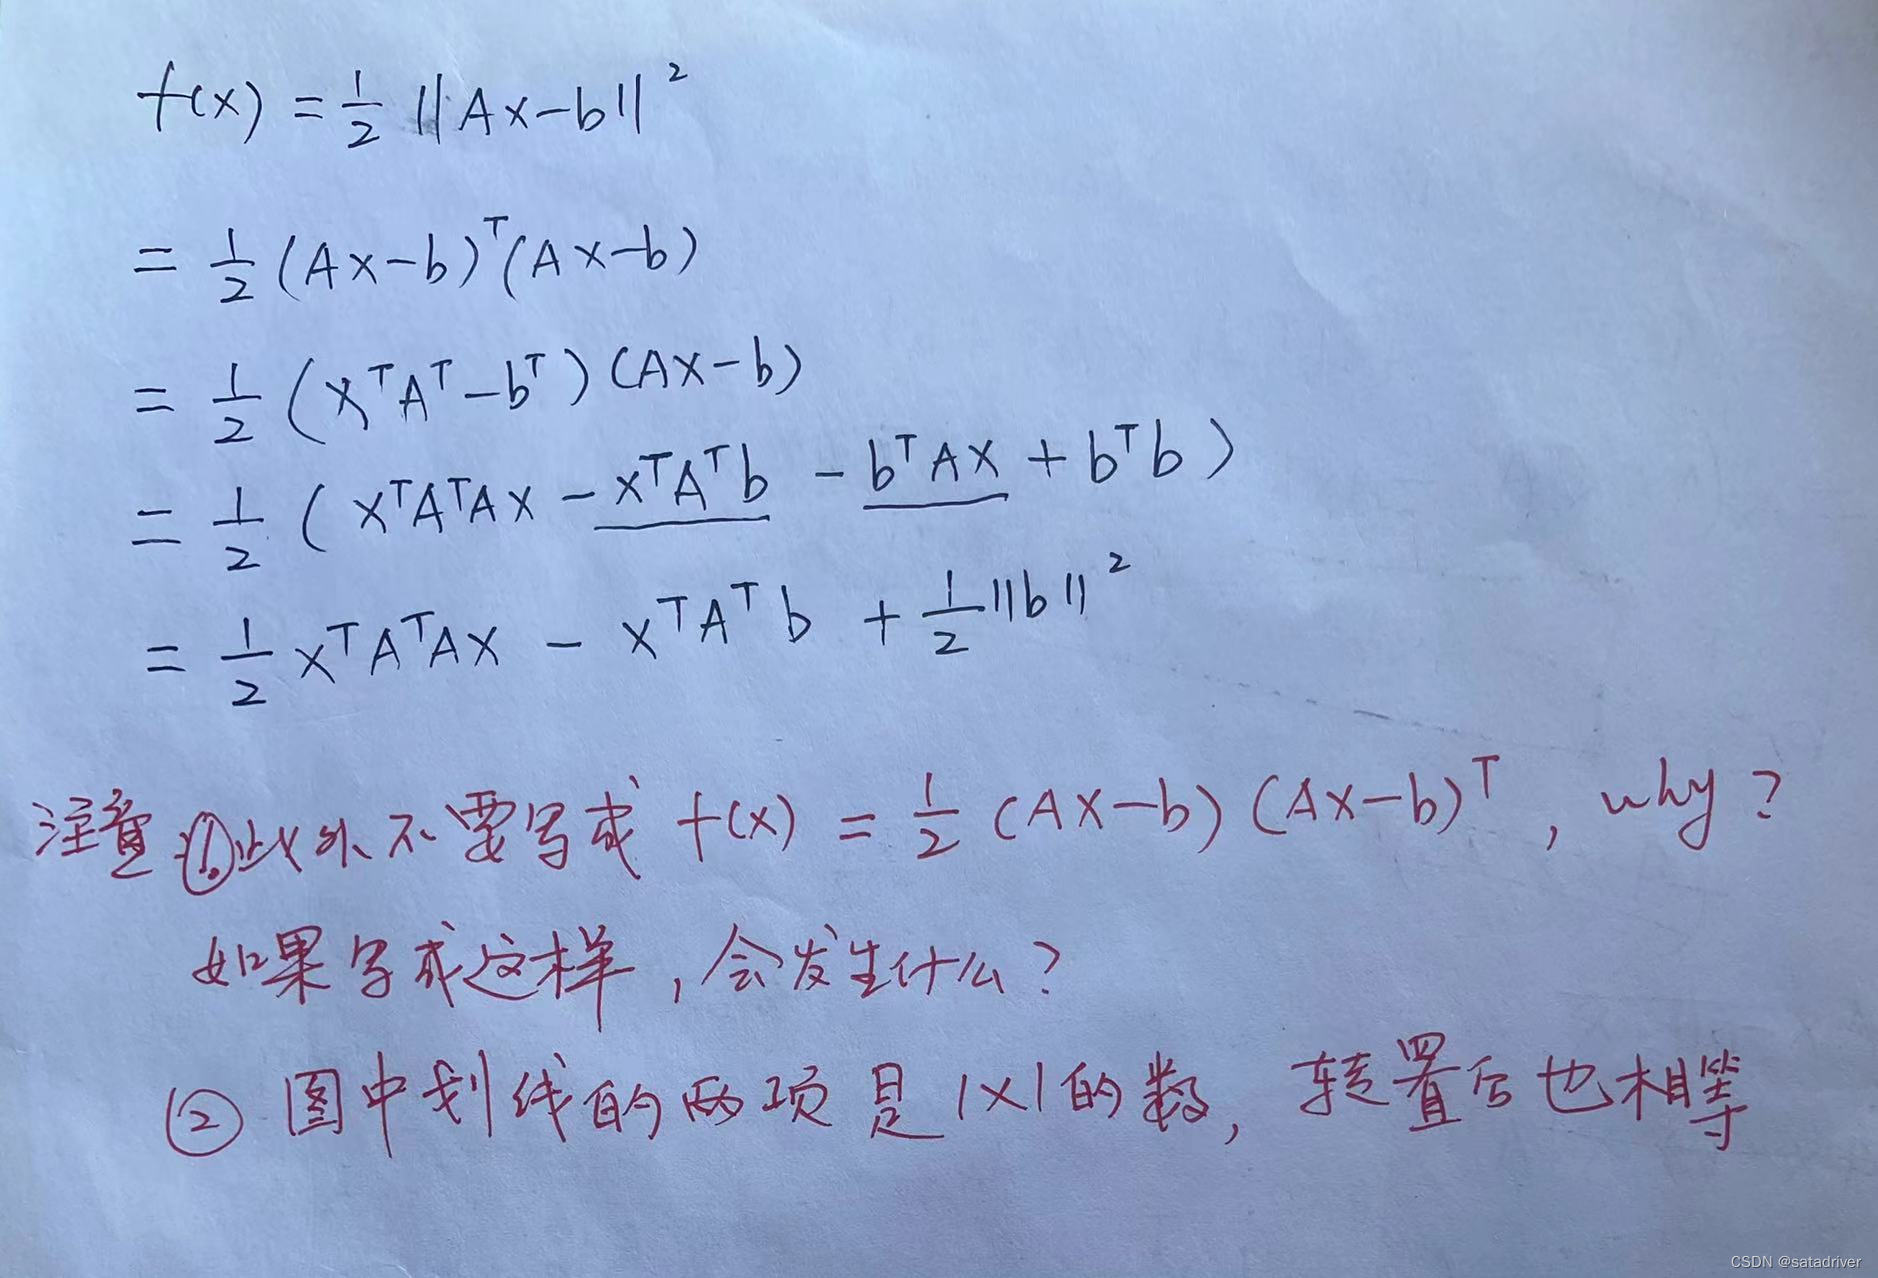 f(x) = 1/2 ||Ax-b||²
= 1/2 (Ax-b)ᵀ(Ax-b)
= 1/2 (xᵀAᵀ-bᵀ)(Ax-b)
= 1/2 (xᵀAᵀAx - xᵀAᵀb - bᵀAx + bᵀb)
= 1/2 xᵀAᵀAx - xᵀAᵀb + 1/2||b||²
注意:①此处不要写成 f(x) = 1/2 (Ax-b)(Ax-b)ᵀ, why?
如果写成这样,会发生什么?
② 图中划线的两项是1x1的数, 转置后也相等
CSDN @satadriver